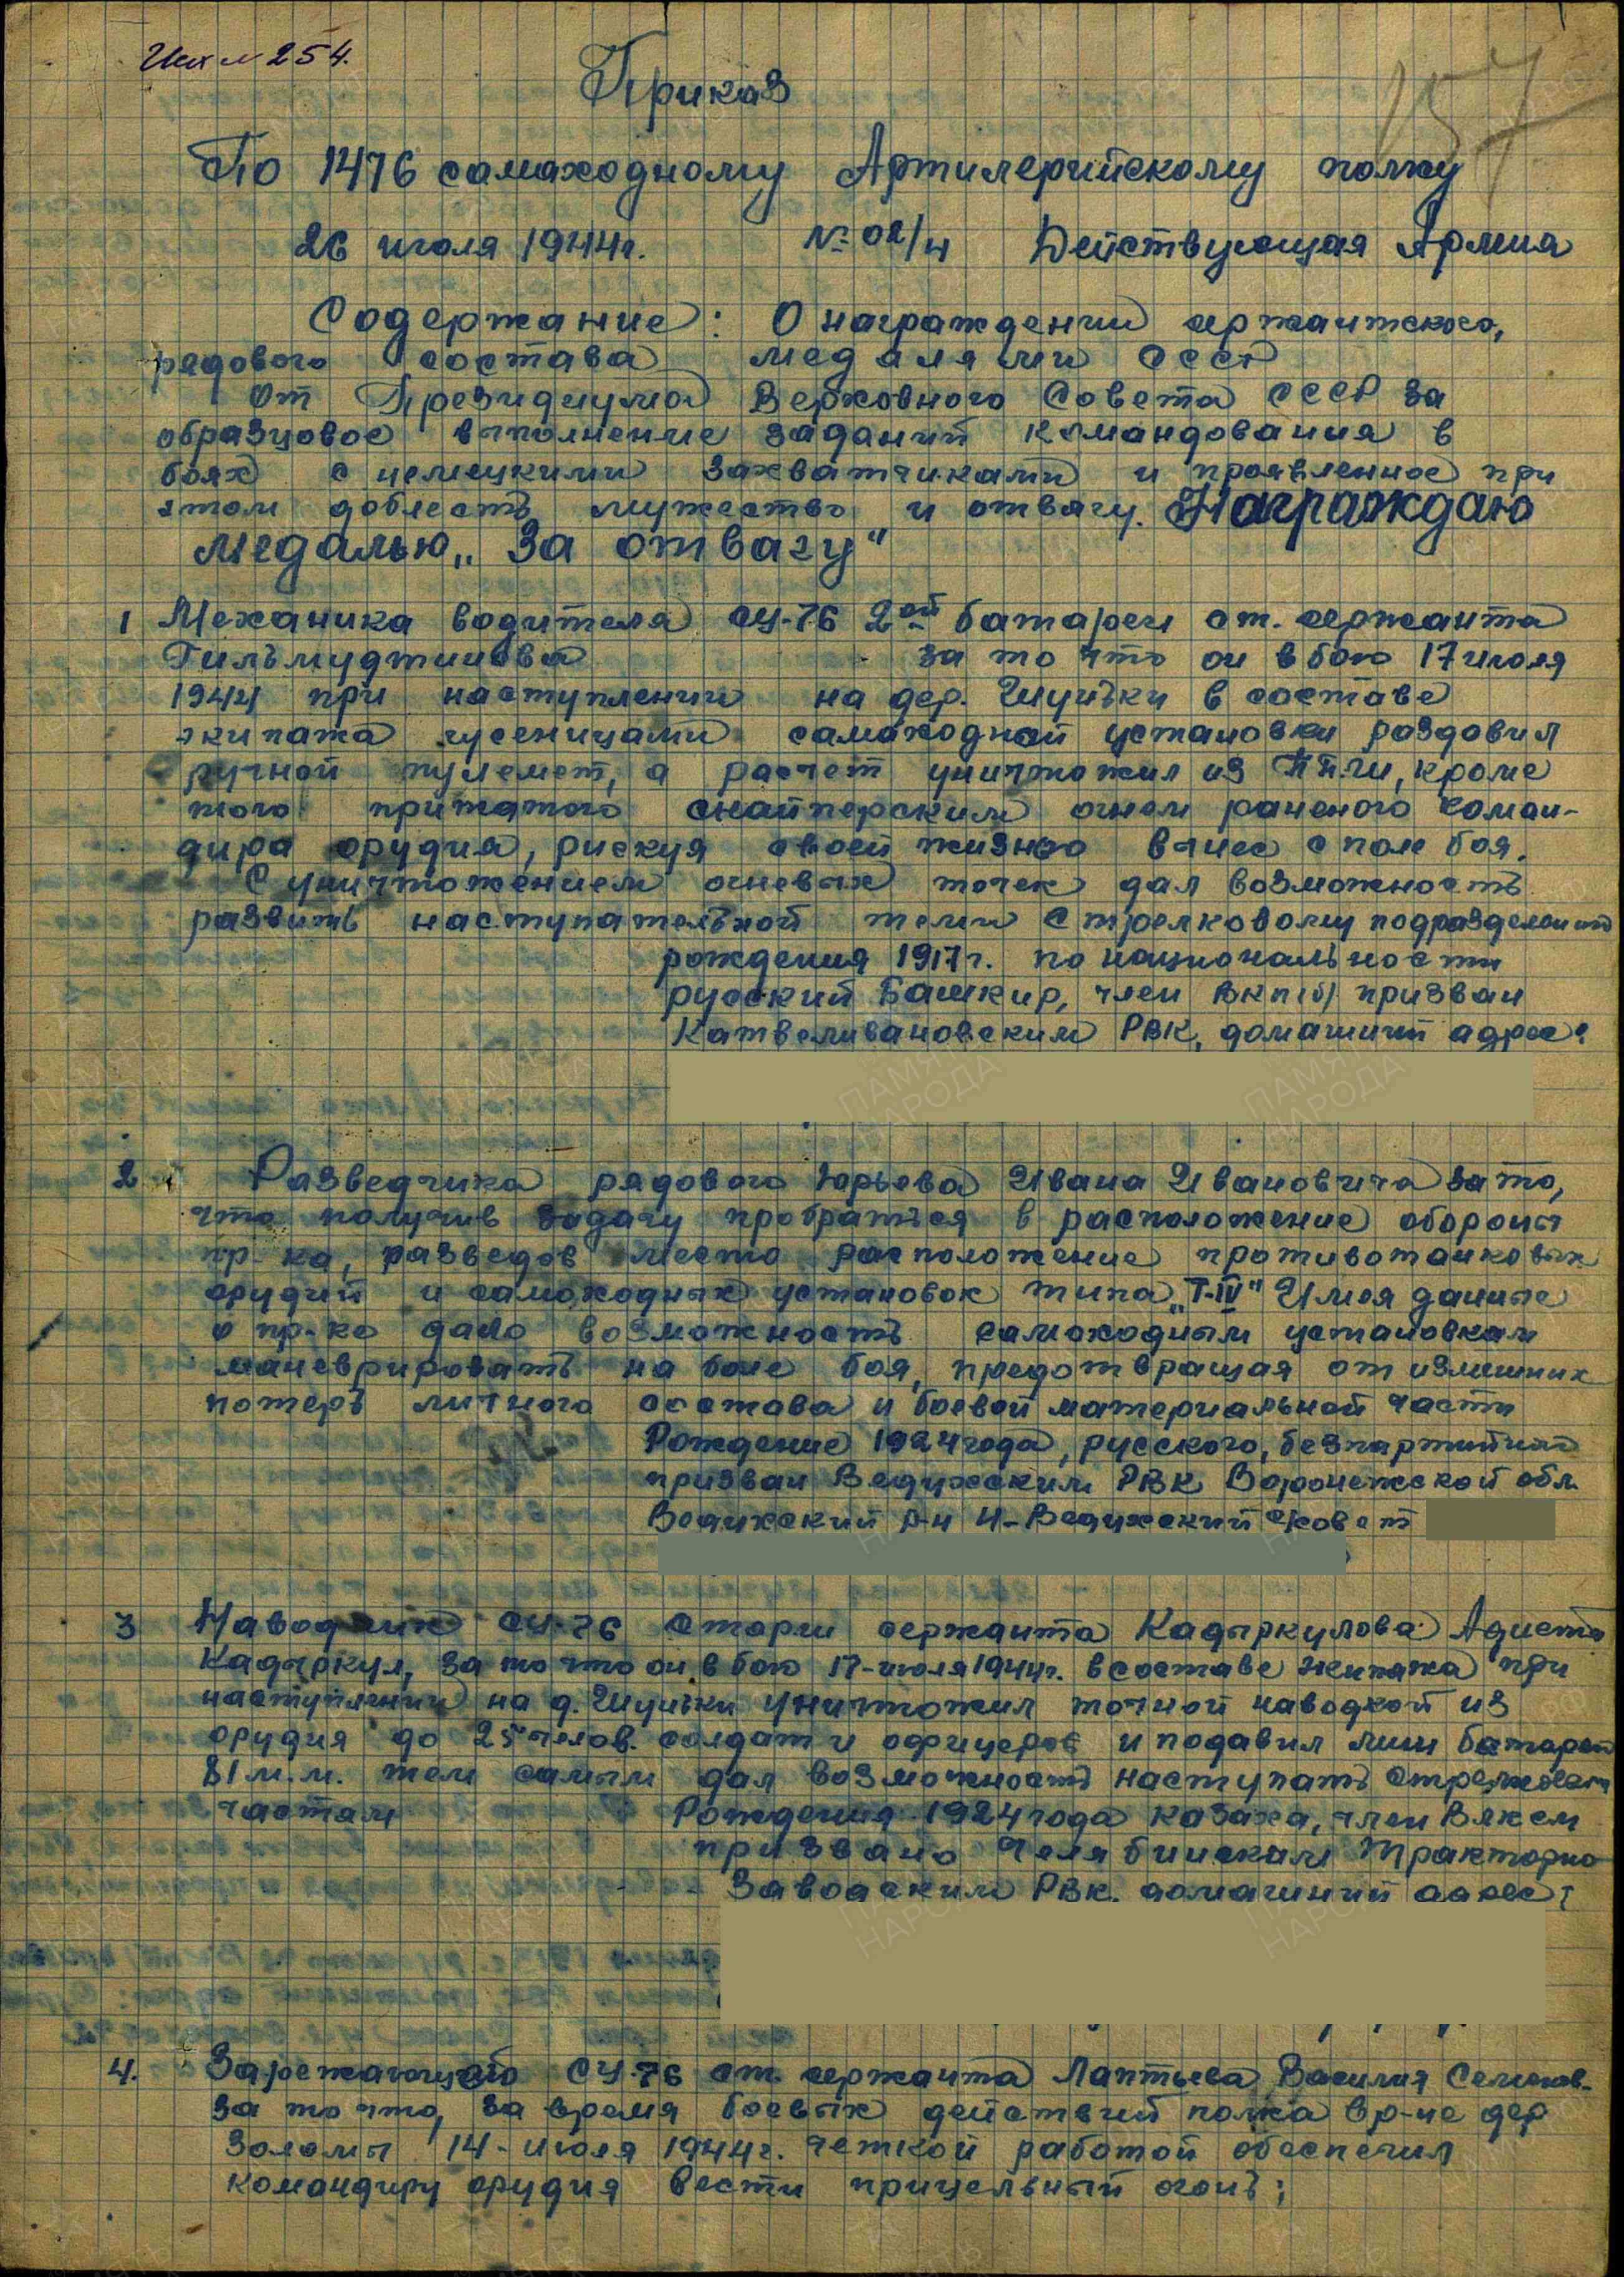 Исх № 254.
157
Приказ
По 1476 самоходному Артилерийскому полку
26 июля 1944г. № 02/н Действующая Армия
Содержание: О награждении сержантского,
рядового состава медалями СССР
От Президиума Верховного Совета СССР за
образцовое выполнение заданий командования в
боях с немецкими захватчиками и проявленное при
этом доблесть мужество и отвагу. Награждаю
медалью „За отвагу"
1 Механика водителя СУ-76 2ой батареи ст. сержанта
Гильмутдинова за то что он в бою 17 июля
1944 при наступлении на дер. Шушки в составе
экипажа гусеницами самоходной установки раздавил
ручной пулемет, а расчет уничтожил из ППШ, кроме
того прижатого снайперским огнем раненого коман-
дира орудия, рискуя своей жизнью вынес с поле боя.
С уничтожением огневых точек дал возможность
развить наступательной темп стрелковому подразделению
рождения 1917г. по национальности
русский Башкир, член ВКП(б) призван
РВК, домашний адрес:
2 Разведчика рядового Юрьева Ивана Ивановича за то,
что получив задачу пробраться в расположение обороны
пр-ка, разведов место расположение противотанковых
орудий и самоходных установок типа „Т-IV" Имея данные
о пр-ке дало возможность самоходным установкам
маневрировать на поле боя, предотвращая от излишних
потерь личного состава и боевой материальной части
Рождение 1924 года, русского, безпартийный
призван Ведужским РВК Воронежской обл.
Ведужский р-н Н-Ведужский с/совет
3 Наводчик СУ-76 Старш сержанта Кадыркулова
Кадыркул, за то что он в бою 17-июля 1944г. в составе экипажа при
наступлении на д. Шушки уничтожил точной наводкой из
орудия до 25 челов. солдат и офицеров и подавил мин батарей
81 м.м. тем самым дал возможность наступать стрелковым
частям Рождения 1924 года казаха, член ВЛКСМ
призвано Челябинским Тракторно
Заводским РВК. домашний адрес:
4. Заряжающего СУ-76 ст. сержанта Лаптьева Василия Семенов.
За то что, за время боевых действий полка в р-не дер
14-июля 1944г. четкой работой обеспечил
командиру орудия вести прицельный огонь;
ПАМЯТЬ
НАРОДА